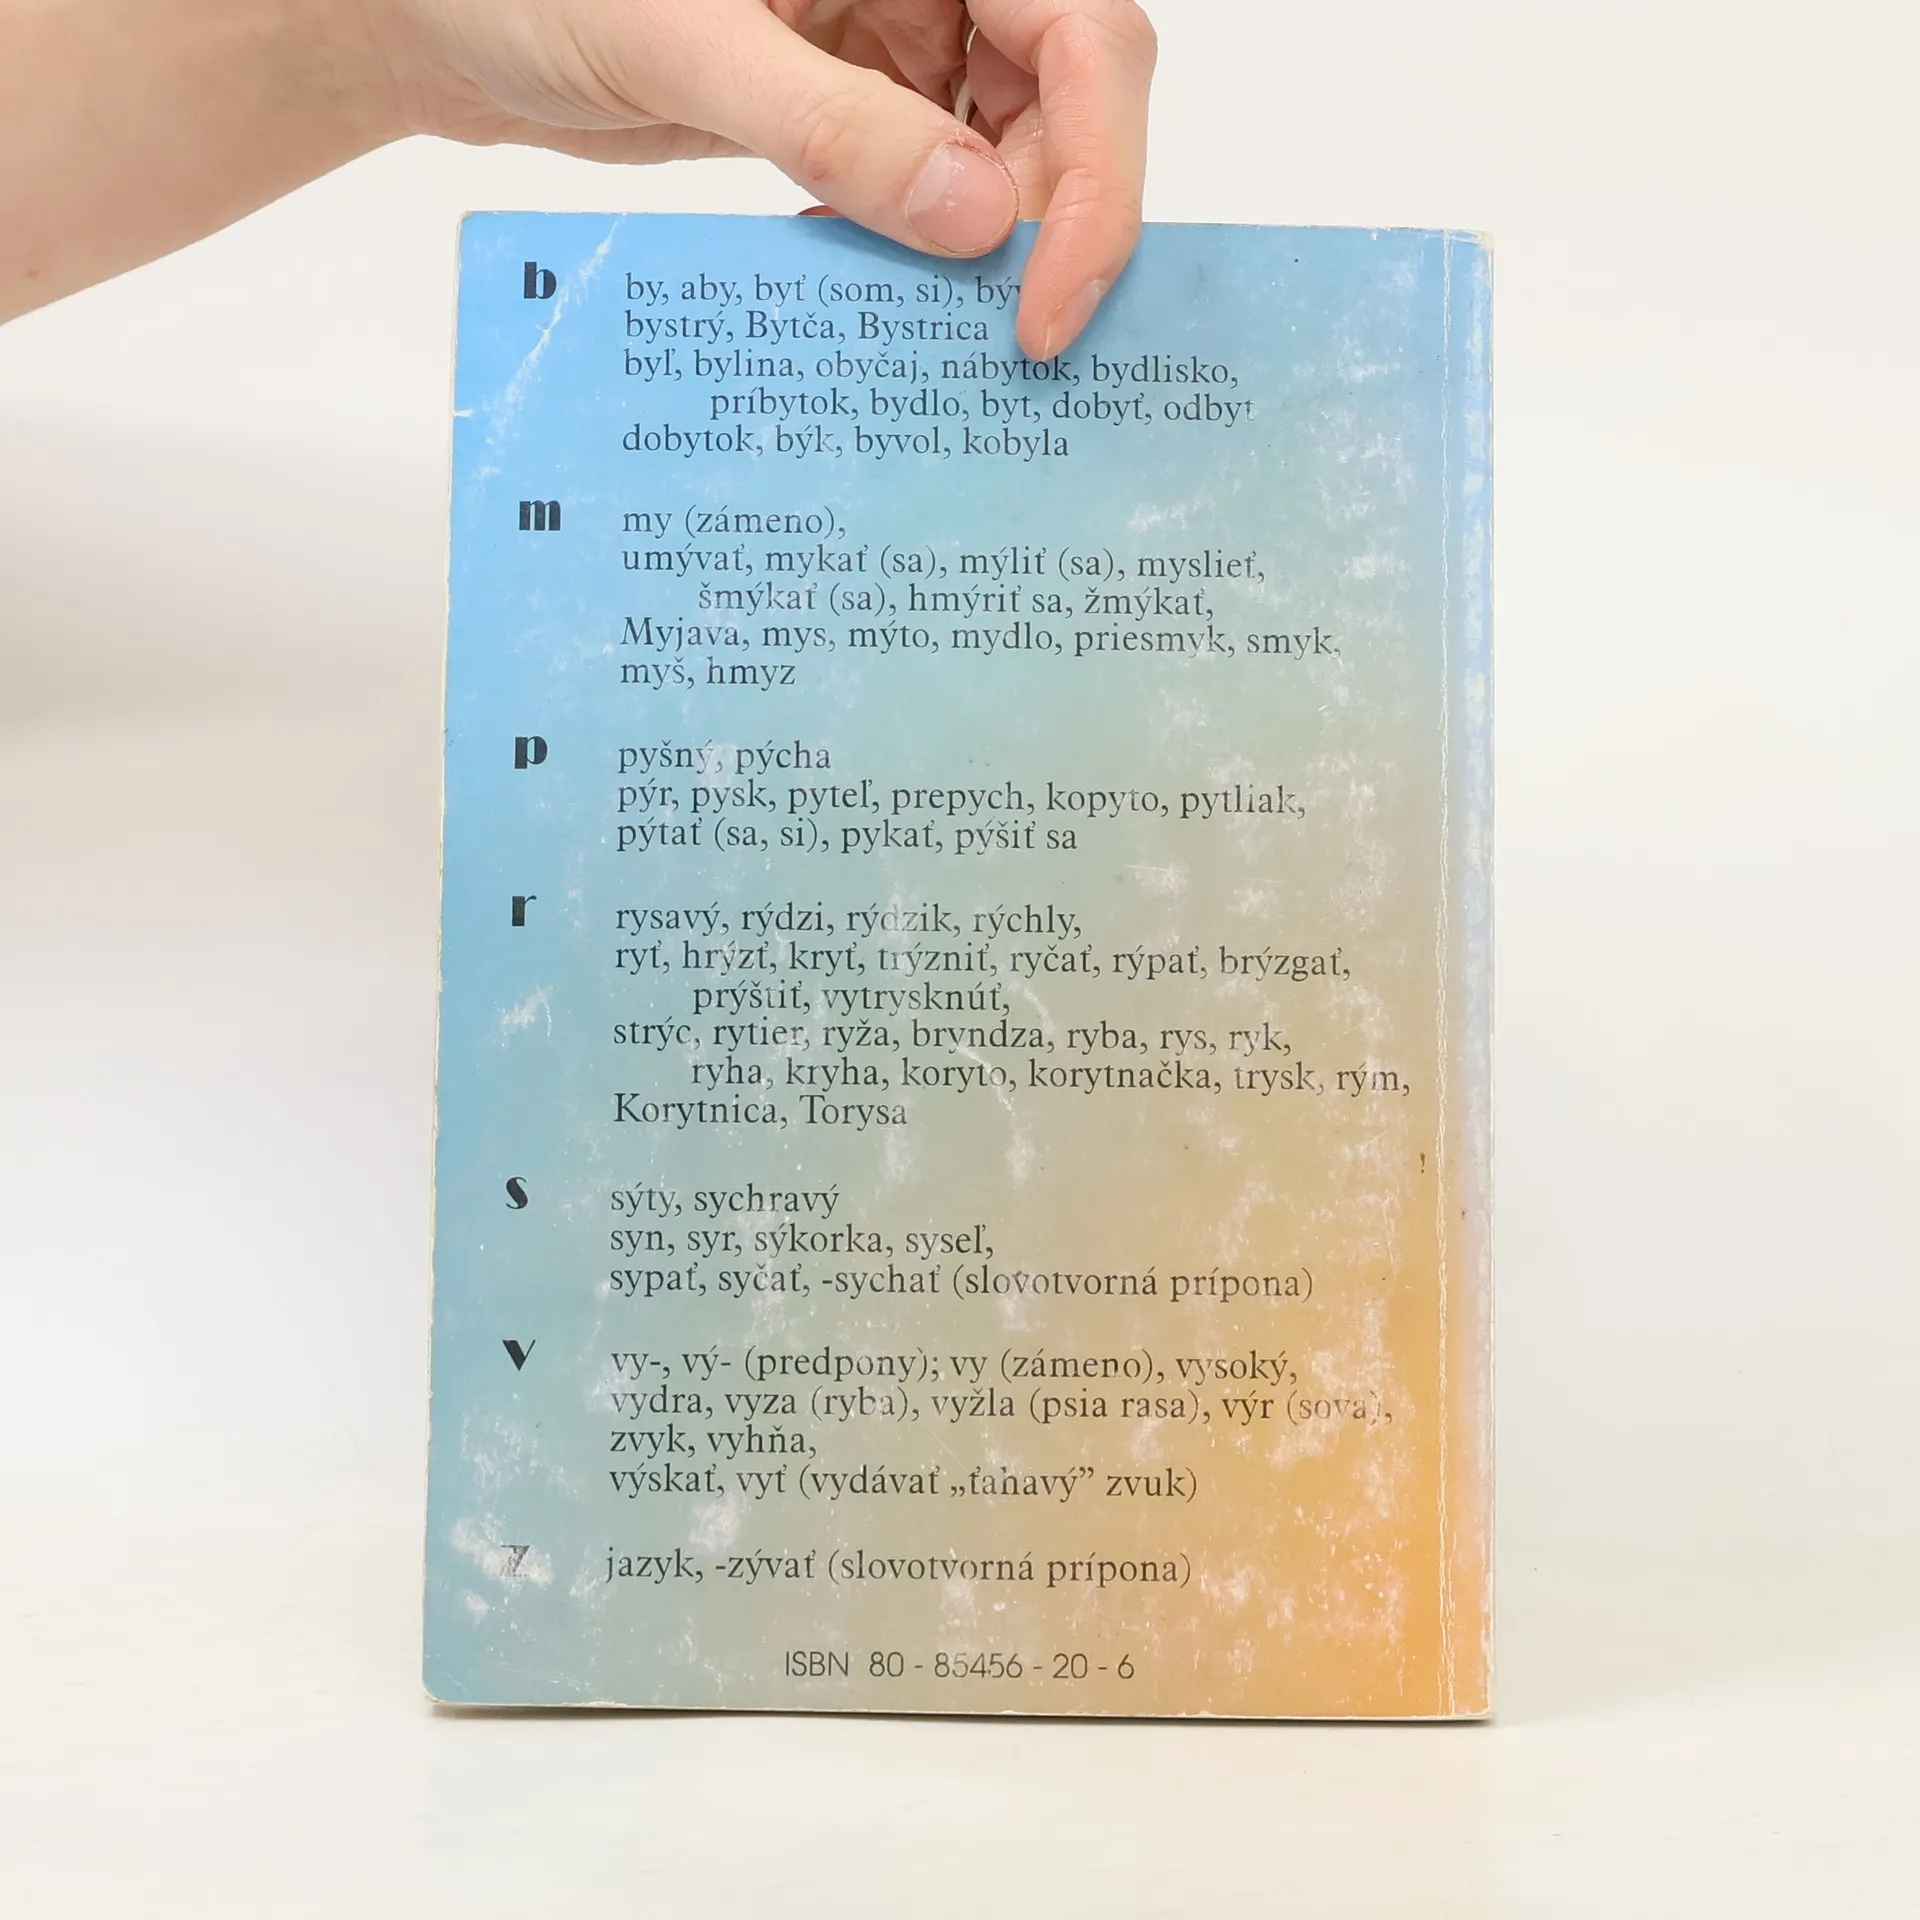 b by, aby, byť (som, si),
bystrý, Bytča, Bystrica
byľ, bylina, obyčaj, nábytok, bydlisko,
príbytok, bydlo, byt, dobyť, odbyt
dobytok, býk, byvol, kobyla
m my (zámeno),
umývať, mykať (sa), mýliť (sa), myslieť,
šmýkať (sa), hmýriť sa, žmýkať,
Myjava, mys, mýto, mydlo, priesmyk, smyk,
myš, hmyz
p pyšný, pýcha
pýr, pysk, pyteľ, prepych, kopyto, pytliak,
pýtať (sa, si), pykať, pýšiť sa
r rysavý, rýdzi, rýdzik, rýchly,
ryť, hrýzť, kryť, trýzniť, ryčať, rýpať, brýzgať,
prýštiť, vytrysknúť,
strýc, rytier, ryža, bryndza, ryba, rys, ryk,
ryha, kryha, koryto, korytnačka, trysk, rým,
Korytnica, Torysa
s sýty, sychravý
syn, syr, sýkorka, syseľ,
sypať, syčať, -sychať (slovotvorná prípona)
v vy-, vý- (predpony); vy (zámeno), vysoký,
vydra, vyza (ryba), vyžla (psia rasa), výr (sova),
zvyk, vyhňa,
výskať, vyť (vydávať „ťahavý” zvuk)
z jazyk, -zývať (slovotvorná prípona)
ISBN 80 - 85456 - 20 - 6